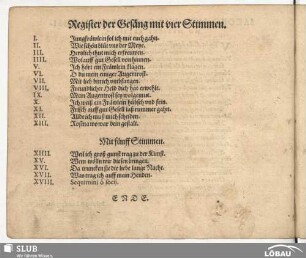 Register der Gesäng mit vier Stimmen.
I. Jungfräwlein sol ich mit euch gahn.
II. Wie schön blüt uns der Meye.
III. Herzlich thut mich erfrewen.
IIII. Wolauff gut Gesell von hinnen.
V. Ich hört ein Fräwlein klagen.
VI. O du mein einiger Augentrost.
VII. Mit lieb durch
VIII. Freundlicher Held dich hat erwöhlt.
IX. Mein Augentrost sey wolgemut.
X. Ich weiß ein Fräwlein hübsch und fein.
XI. Frisch auff gut Gesell laß rummer gahn.
XII. Ade ich muß mich scheiden.
XIII. Rosina wo war dein gestalt.
Mit fünff Stimmen.
XIIII. Weil ich groß gunst trag zu der Kunst.
XV. Wem wölln wir diesen bringen.
XVI. Da truncken sie die liebe lange Nacht.
XVII. Was trag ich auff mein Henden.
XVIII. Sequimini ô socij.
ENDE.
SLUB
Wir führen Wissen.
LÖBAU